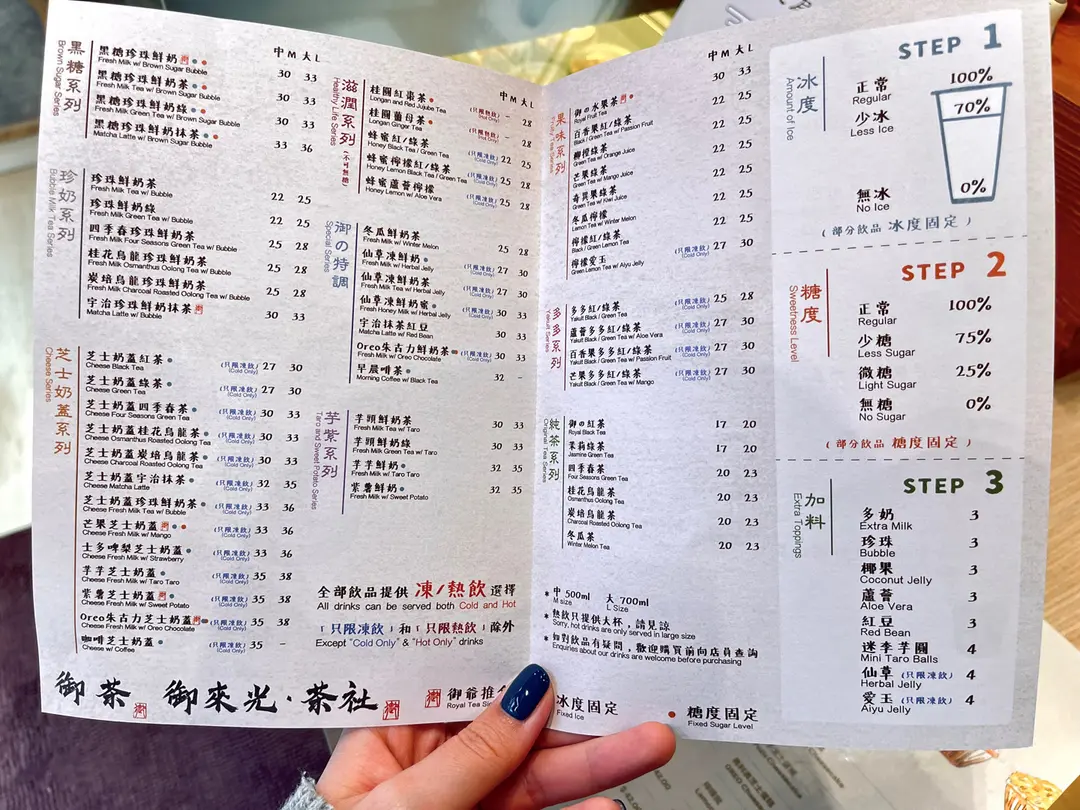 黑糖系列
Brown Sugar Series
中M 大L
黑糖珍珠鮮奶
Fresh Milk w/ Brown Sugar Bubble
30 33
黑糖珍珠鮮奶茶
Fresh Milk Tea w/ Brown Sugar Bubble
30 33
黑糖珍珠鮮奶綠
Fresh Milk Green Tea w/ Brown Sugar Bubble
30 33
黑糖珍珠鮮奶抹茶
Matcha Latte w/ Brown Sugar Bubble
33 36
珍奶系列
Bubble Milk Tea Series
珍珠鮮奶茶
Fresh Milk Tea w/ Bubble
22 25
珍珠鮮奶綠
Fresh Milk Green Tea w/ Bubble
22 25
四季春珍珠鮮奶茶
Fresh Milk Four Seasons Green Tea w/ Bubble
25 28
桂花烏龍珍珠鮮奶茶
Fresh Milk Osmanthus Oolong Tea w/ Bubble
25 28
炭焙烏龍珍珠鮮奶茶
Fresh Milk Charcoal Roasted Oolong Tea w/ Bubble
25 28
宇治珍珠鮮奶抹茶
Matcha Latte w/ Bubble
30 33
芝士奶蓋系列
Cheese Series
芝士奶蓋紅茶
Cheese Black Tea
(只限凍飲) 27 30
(Cold Only)
芝士奶蓋綠茶
Cheese Green Tea
(只限凍飲) 27 30
(Cold Only)
芝士奶蓋四季春茶
Cheese Four Seasons Green Tea
(只限凍飲) 30 33
(Cold Only)
芝士奶蓋桂花烏龍茶
Cheese Osmanthus Roasted Oolong Tea
(只限凍飲) 30 33
(Cold Only)
芝士奶蓋炭焙烏龍茶
Cheese Charcoal Roasted Oolong Tea
(只限凍飲) 30 33
(Cold Only)
芝士奶蓋宇治抹茶
Cheese Matcha Latte
(只限凍飲) 32 35
(Cold Only)
芝士奶蓋珍珠鮮奶茶
Cheese Fresh Milk Tea w/ Bubble
(只限凍飲) 33 36
(Cold Only)
芒果芝士奶蓋
Cheese Fresh Milk w/ Mango
(只限凍飲) 33 36
(Cold Only)
士多啤梨芝士奶蓋
Cheese Fresh Milk w/ Strawberry
(只限凍飲) 33 36
(Cold Only)
芋芋芝士奶蓋
Cheese Fresh Milk w/ Taro Taro
(只限凍飲) 35 38
(Cold Only)
紫薯芝士奶蓋
Cheese Fresh Milk w/ Sweet Potato
(只限凍飲) 35 38
(Cold Only)
Oreo朱古力芝士奶蓋
Cheese Fresh Milk w/ Oreo Chocolate
(只限凍飲) 35 38
(Cold Only)
咖啡芝士奶蓋
Cheese w/ Coffee
(只限凍飲) 35 -
(Cold Only)
御茶 御來光·茶社
滋潤系列 (不可無糖)
Healthy Life Series
中M 大L
桂圓紅棗茶
Longan and Red Jujube Tea
(只限熱飲) - 28
(Hot Only)
桂圓薑母茶
Longan Ginger Tea
(只限熱飲) - 28
(Hot Only)
蜂蜜紅/綠茶
Honey Black Tea / Green Tea
(只限凍飲) 22 25
(Cold Only)
蜂蜜檸檬紅/綠茶
Honey Lemon Black Tea / Green Tea
(只限凍飲) 25 28
(Cold Only)
蜂蜜蘆薈檸檬
Honey Lemon w/ Aloe Vera
(只限凍飲) 25 28
(Cold Only)
御の特調
Special Series
冬瓜鮮奶
Fresh Milk w/ Winter Melon
25 28
仙草凍鮮奶
Fresh Milk w/ Herbal Jelly
(只限凍飲) 27 30
(Cold Only)
仙草凍鮮奶茶
Fresh Milk Tea w/ Herbal Jelly
(只限凍飲) 27 30
(Cold Only)
仙草凍鮮奶蜜
Fresh Honey Milk w/ Herbal Jelly
(只限凍飲) 30 33
(Cold Only)
宇治抹茶紅豆
Matcha Latte w/ Red Bean
30 33
Oreo朱古力鮮奶茶
Fresh Milk w/ Oreo Chocolate
(只限凍飲) 30 33
(Cold Only)
早晨啡茶
Morning Coffee w/ Black Tea
32 -
芋紫系列
Taro and Sweet Potato Series
芋頭鮮奶茶
Fresh Milk Tea w/ Taro
30 33
芋頭鮮奶綠
Fresh Milk Green Tea w/ Taro
30 33
芋芋鮮奶
Fresh Milk w/ Taro Taro
32 35
紫薯鮮奶
Fresh Milk w/ Sweet Potato
32 35
全部飲品提供 凍/熱飲 選擇
All drinks can be served both Cold and Hot
「只限凍飲」和「只限熱飲」除外
Except "Cold Only" & "Hot Only" drinks
御爺推介
果味系列
中M 大L
御の水果茶
Royal Fruit Tea
30 33
百香果紅/綠茶
Black / Green Tea w/ Passion Fruit
22 25
柳橙綠茶
Green Tea w/ Orange Juice
22 25
芒果綠茶
Green Tea w/ Mango Juice
22 25
奇異果綠茶
Green Tea w/ Kiwi Juice
22 25
冬瓜檸檬
22 25
檸檬紅/綠茶
Black / Green Lemon Tea
22 25
檸檬愛玉
Green Lemon Tea w/ Aiyu Jelly
(只限凍飲) 27 30
(Cold Only)
多多系列
Yakult Series
多多紅/綠茶
Yakult Black / Green Tea
(只限凍飲) 25 28
(Cold Only)
蘆薈多多紅/綠茶
Yakult Black / Green Tea w/ Aloe Vera
(只限凍飲) 27 30
(Cold Only)
百香果多多紅/綠茶
Yakult Black / Green Tea w/ Passion Fruit
(只限凍飲) 27 30
(Cold Only)
芒果多多紅/綠茶
Yakult Black / Green Tea w/ Mango
(只限凍飲) 27 30
(Cold Only)
純茶系列
Original Tea Series
御の紅茶
Royal Black Tea
17 20
茉莉綠茶
Jasmine Green Tea
17 20
四季春茶
Four Seasons Green Tea
20 23
桂花烏龍茶
Osmanthus Oolong Tea
20 23
炭焙烏龍茶
Charcoal Roasted Oolong Tea
20 23
冬瓜茶
Winter Melon Tea
20 23
* 中 500ml 大 700ml
M size L Size
* 熱飲只提供大杯，請見諒
Sorry, hot drinks are only served in large size
* 如對飲品有疑問，歡迎購買前向店員查詢
Enquiries about our drinks are welcome before purchasing
冰度固定
Fixed Ice
糖度固定
Fixed Sugar Level
STEP 1
冰度
Amount of Ice
正常
Regular
100%
少冰
Less Ice
70%
無冰
No Ice
0%
( 部分飲品 冰度固定 )
STEP 2
糖度
Sweetness Level
正常 100%
Regular
少糖 75%
Less Sugar
微糖 25%
Light Sugar
無糖 0%
No Sugar
( 部分飲品 糖度固定 )
STEP 3
加料
Extra Toppings
多奶 3
Extra Milk
珍珠 3
Bubble
椰果 3
Coconut Jelly
蘆薈 3
Aloe Vera
紅豆 3
Red Bean
迷李芋圓 4
Mini Taro Balls
仙草 (只限凍飲) 4
Herbal Jelly
愛玉 (只限凍飲) 4
Aiyu Jelly